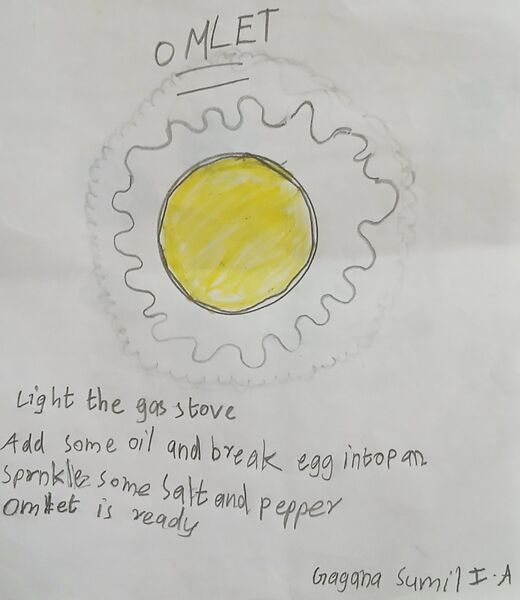 OMLET
Light the gas stove
Add some oil and break egg into pan
Sprnkle some salt and pepper
Omlet is ready
Gagana Sumil I.A